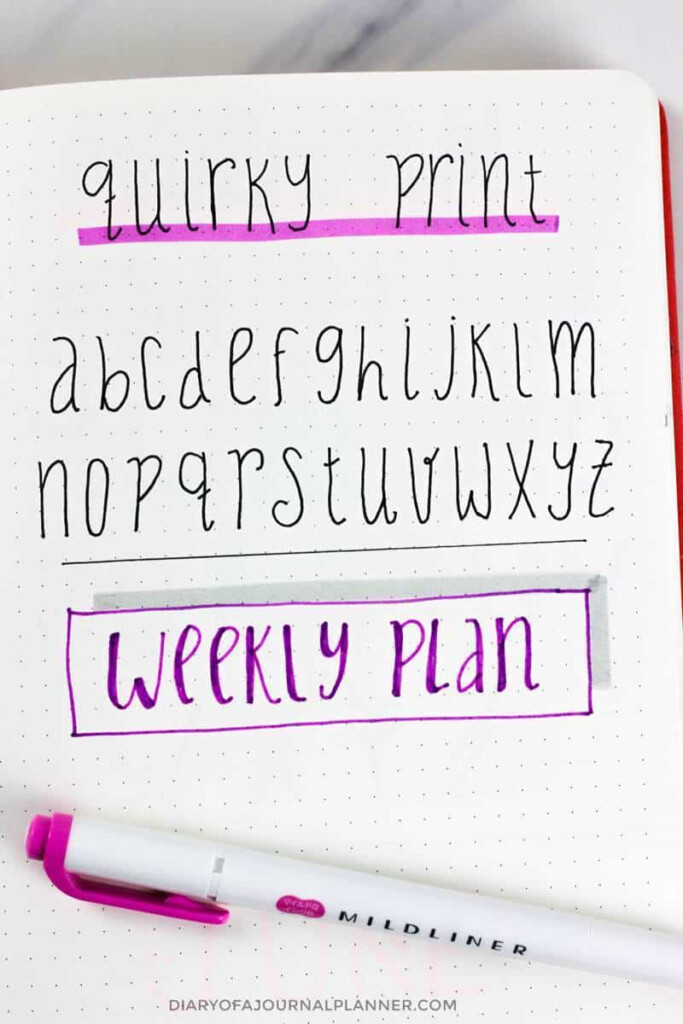 quirky print
abcdefghijklm
nopqrstuvwxyz
weekly plan
MILDLINER
DIARYOFAJOURNALPLANNER.COM